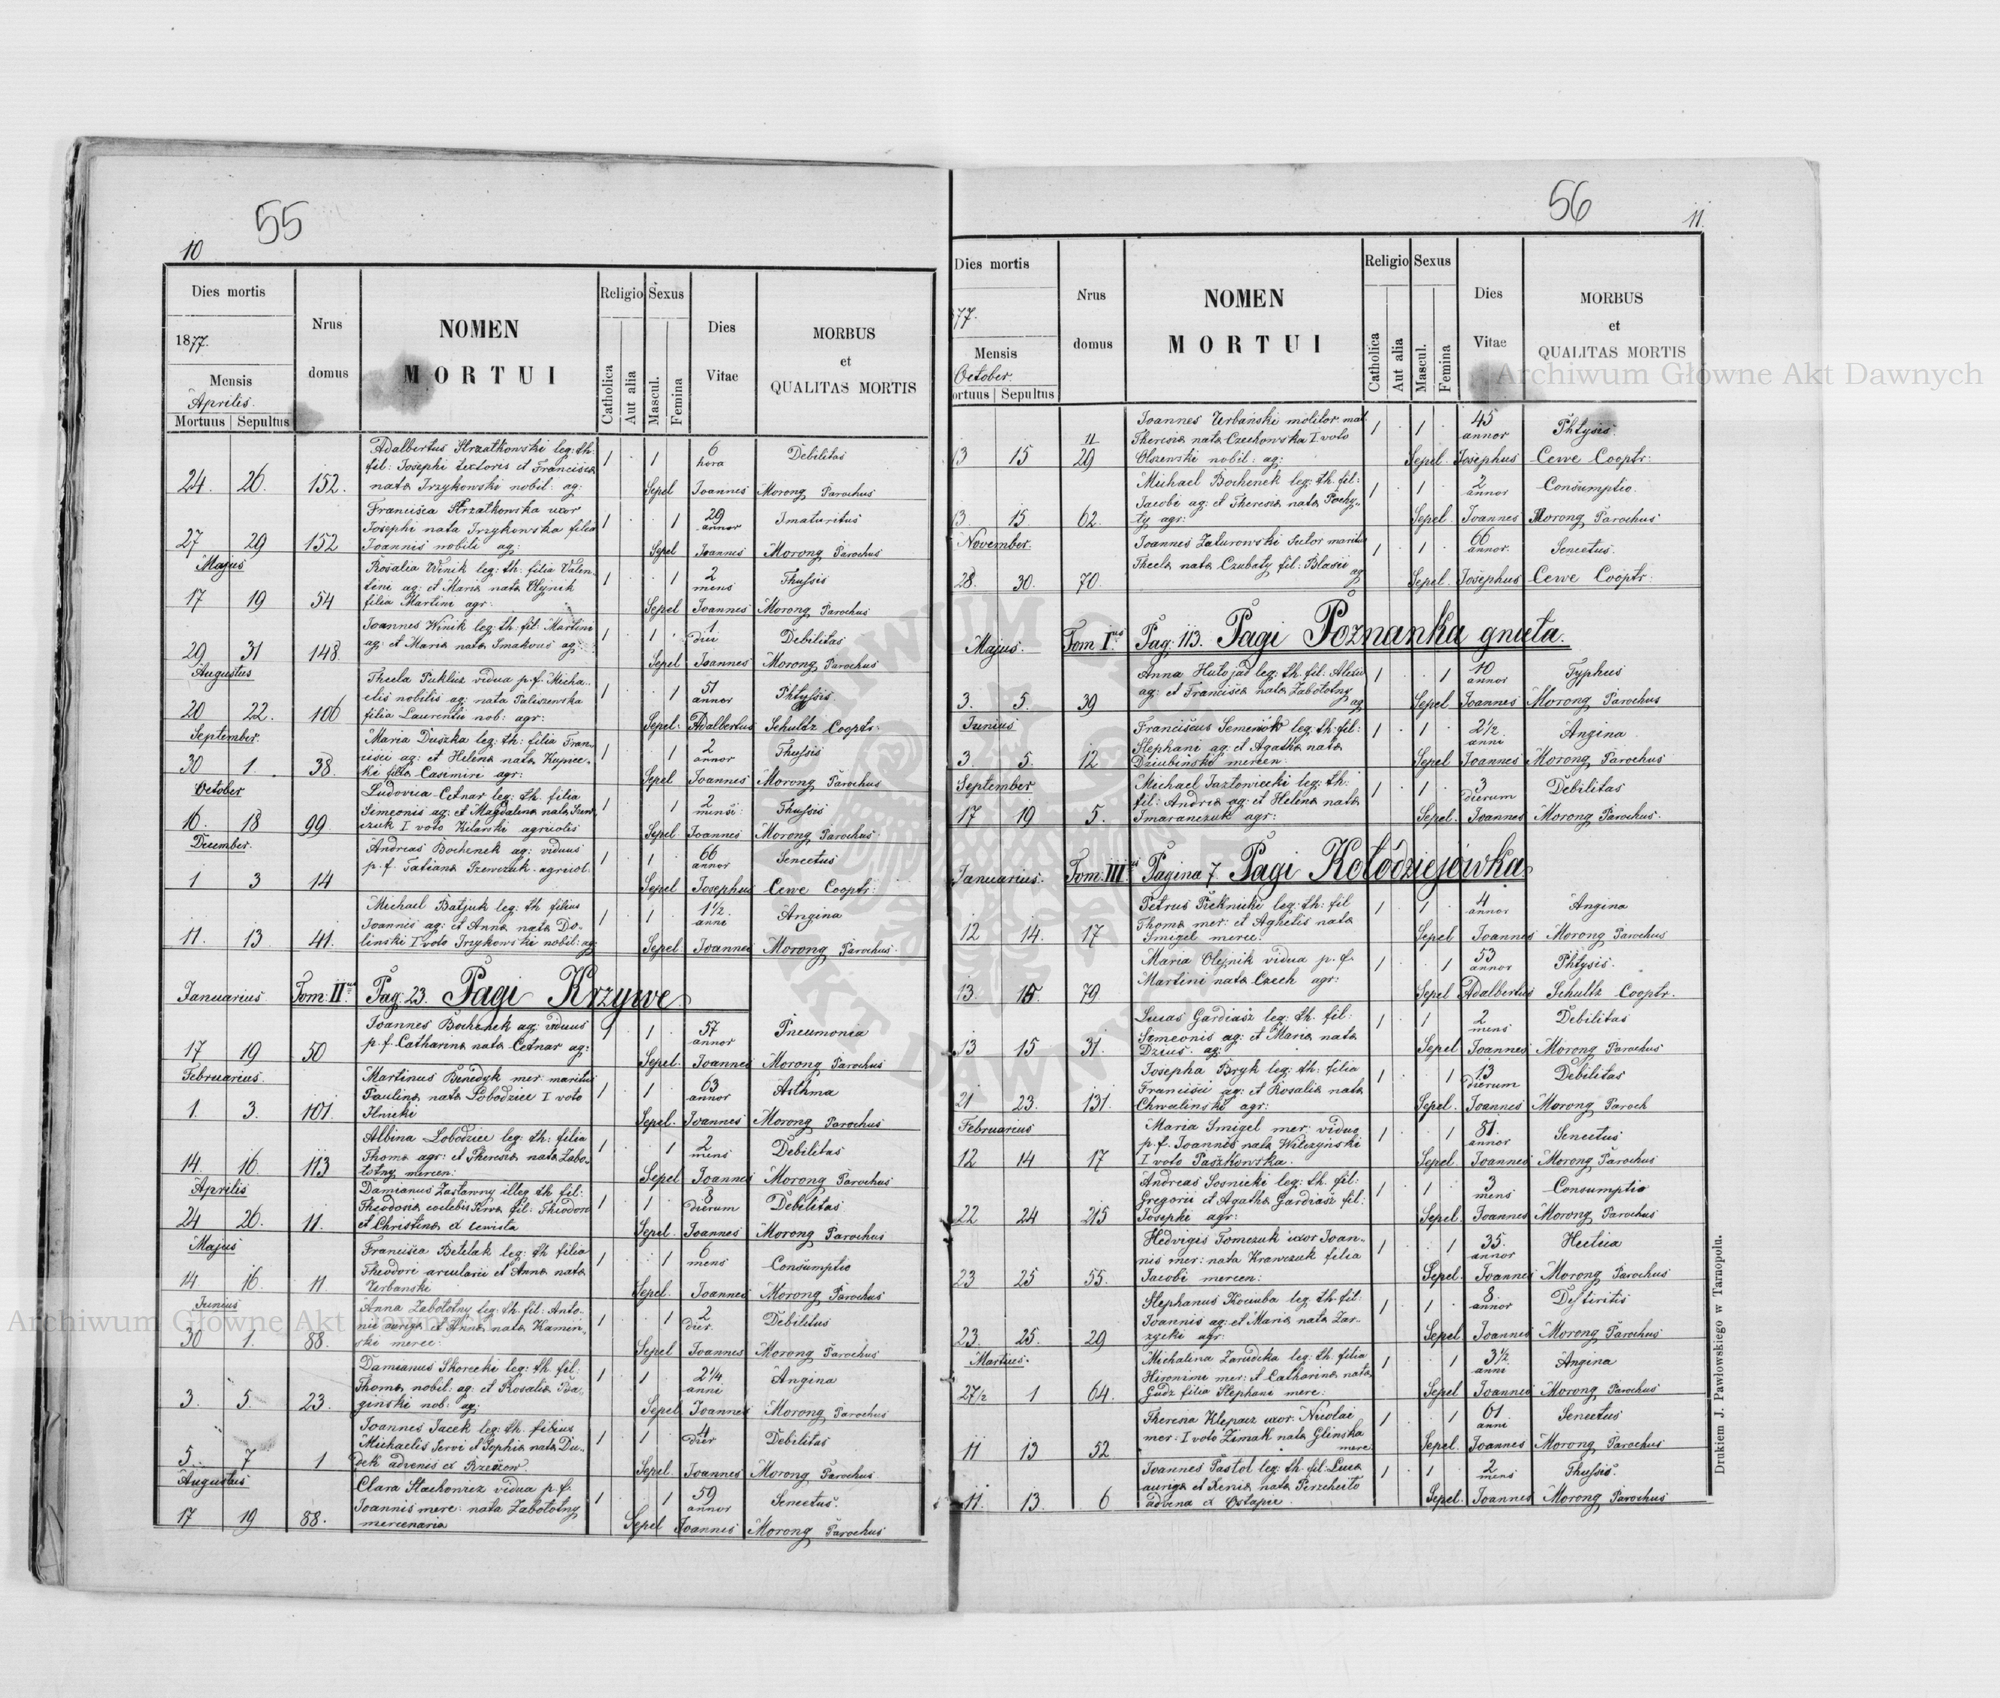 55
10
Dies mortis
1877.
Mensis
Aprilis.
Mortuus Sepultus
Nrus
domus
NOMEN
MORTUI
Religio
Catholica
Aut alia
Sexus
Mascul.
Femina
Dies
Vitae
MORBUS
et
QUALITAS MORTIS
Adalbertus Strzałkowski leg: th. 1 1 6 Debilitas
fil: Josephi textoris et Francisca hora
24. 26. 152. nata Irzykowski nobil: ag: Sepel Joannes Morong Parochus
Francisca Strzałkowska uxor 1 1 29 Imaturitus
Josephi nata Irzykowska filia annor
27 29 152 Joannis nobili ag: Sepel Joannes Morong Parochus
Majus
Rosalia Winik leg: th. filia Valen- 1 1 2 Thussis
tini ag: et Maria nata Olejnik mens
17 19 54 filia Martini agr: Sepel Joannes Morong Parochus
Joannes Winik leg: th. fil: Martini 1 1 1 Debilitas
ag: et Maria nata ag: diei
29 31 148. Sepel Joannes Morong Parochus
Augustus
Thecla Puklicz vidua p.f. Micha- 1 1 51 Phtysis
elis nobilis ag: nata Paliszewska annor
20 22. 106 filia Laurentii nob: agr: Sepel: Adalbertus Schultz Cooptr.
September.
Maria Duszka leg: th: filia Fran- 1 1 2 Thussis
cisci ag: et Helena nata Kupiec- annor
30 1. 38. ki filia Casimiri agr: Sepel Joannes Morong Parochus
October
Ludovica Cetnar leg: th. filia 1 1 2 Thussis
Simeonis ag: et Magdalena nata mensi
16. 18 99 czuk I voto Kilarski agricolis Sepel Joannes Morong Parochus
December.
Andreas Bochenek ag: viduus 1 1 66 Senectus
p.f. Tatiana Szewczuk agricol. annor
1 3 14 Sepel Josephus Cewe Cooptr:
Michael Batjuk leg: th filius 1 1 1½ Angina
Joannis ag: et Anna nata Do- anni
11. 13 41. linski I voto Irzykowski nobil: ag: Sepel Joannes Morong Parochus
Januarius Tom: II Pag: 23. Pagi Krzywe
Joannes Bochenek ag: viduus 1 1 57 Pneumonia
p.f. Catharina nata Cetnar ag: annor
17 19 50 Sepel. Joannes Morong Parochus
Februarius
Martinus Benedyk mer: maritus 1 1 63 Asthma
Paulina nata Łobodziec I voto annor
1. 3. 101. Ilnicki Sepel Joannes Morong Parochus
Albina Łobodziec leg: th: filia 1 1 2 Debilitas
Thoma agr: et Theresia nata Zabo- mens
14. 16 113 łotny mercen: Sepel Joannes Morong Parochus
Aprilis
Damianus Zastawny illeg th fil: 1 1 8 Debilitas
Theodosia coelebis fil: Theodori dierum
24 26. 11. et Christina Sepel. Joannes Morong Parochus
Majus
Francisca Betlak leg: th filia 1 1 6 Consumptio
Theodori arcularii et Anna nata mens
14 16. 11 Urbanski Sepel. Joannes Morong Parochus
Junius
Anna Zabołotny leg: th. fil: Anto- 1 1 2 Debilitas
nii auriga et Anna nata Kamin- dier.
30 1. 88. ski merce Sepel Joannes Morong Parochus
Damianus Skorecki leg: th. fil: 1 1 2¼ Angina
Thoma nobil. ag: et Rosalia Ba- anni
3. 5. 23. ginski nob: ag: Sepel Joannes Morong Parochus
Joannes Jacek leg: th. filius 1 1 4 Debilitas
Michaelis servi et Sophia nata Du- dier
5. 7 1 dek advenis ex Rzeszow. Sepel Joannes Morong Parochus
Augustus
Clara Stachowicz vidua p.f. 1 1 59 Senectus.
Joannis merc: nata Zabołotny annor
17 19 88. mercenaria Sepel Joannes Morong Parochus
56
11.
Dies mortis
77.
Mensis
October.
ortuus Sepultus
Nrus
domus
NOMEN
MORTUI
Religio
Catholica
Aut alia
Sexus
Mascul.
Femina
Dies
Vitae
MORBUS
et
QUALITAS MORTIS
Joannes Urbański molitor mat 1 1 45 Phtysis
11 Theresia nata Czechowska I voto annor
13 15 29 Olszewski nobil: ag: Sepel. Josephus Cewe Cooptr:
Michael Bochenek leg: th. fil: 1 1 2 Consumptio
Jacobi ag: et Theresia nata Pochy- annor
13. 15 62. ły agr: Sepel. Joannes Morong Parochus
November.
Joannes Zaturowski sutor marit 1 1 66 Senectus.
Thecla nata Czubaty fil: Blasii ag annor.
28. 30. 70. Sepel. Josephus Cewe Cooptr.
Majus. Tom I Pag: 113. Pagi Poznanka gniła.
Anna Hutojad leg: th. fil: 1 1 10 Typhus
ag: et Francisca nata Zabołotny ag annor
3. 5. 39 Sepel Joannes Morong Parochus
Junius
Franciscus Semeńok leg: th: fil: 1 1 2½ Angina
Stephani ag: et Agatha nata anni
3. 5. 12 Dziubinska mercen: Sepel Joannes Morong Parochus
September
Michael Jazłowiecki leg: th: 1 1 3 Debilitas
fil: Andrea ag: et Helena nata dierum
17 19 5. Smaranczuk agr: Sepel. Joannes Morong Parochus.
Januarius. Tom: III Pagina 7. Pagi Kołodziejówka
Petrus Pieknicki leg: th. fil 1 1 4 Angina
Thoma mer: et Aghetis nata annor
12 14. 17 Smigel merce: Sepel Joannes Morong Parochus
Maria Olejnik vidua p.f. 1 1 53 Phtysis.
Martini nata Czech agr: annor
13. 15 79 Sepel Adalbertus Schultz Cooptr.
Lucas Gardiasz leg: th. fil: 1 1 2 Debilitas
Simeonis ag: et Maria nata mens
13 15 31. Dzius. ag: Sepel Joannes Morong Parochus
Josepha Bryk leg: th: filia 1 1 13 Debilitas
Francisci ag: et Rosalia nata dierum
21 23. 131. Chwalinski agr: Sepel. Joannes Morong Paroch
Februarius
Maria Smigel mer: vidua 1 1 81. Senectus
p.f. Joannis nata Wilczyński annor
12 14 17 I voto Paszkowska. Sepel Joannes Morong Parochus
Andreas Sosnicki leg: th. fil: 1 1 3 Consumptio
Gregorii et Agatha Gardiasz fil: mens
22 24 215 Josephi agr: Sepel Joannes Morong Parochus
Hedvigis Tomczuk uxor Joan- 1 1 35. Hectica
nis mer: nata Krawczuk filia annor
23 25 55. Jacobi mercen: Sepel. Joannes Morong Parochus
Stephanus Kociuba leg. th. fil: 1 1 8.
Joannis ag: et Maria nata Zar- annor
23. 25. 29 zycki agr: Sepel Joannes Morong Parochus
Martius.
Michalina Zarudzka leg: th. filia 1 1 3½ Angina
Hironimi mer: et Catharina nata anni
27/2 1 64. Gudz filia Stephani merc: Sepel Joannes Morong Parochus
Theresia Klepacz uxor. Nicolai 1 1 61 Senectus
mer: I voto Zimak nata Glinska merc anni
11 13 52 Sepel. Joannes Morong Parochus
Joannes Pastoł leg: th. fil: Luca 1 1 2 Thussis.
auriga et Xenia nata mens
11. 13. 6 advena ex Ostapia. Sepel. Joannes Morong Parochus
Drukiem J. Pawłowskiego w Tarnopolu.
Archiwum Główne Akt Dawnych
Archiwum Główne Akt Dawnych
ARCHIWUM GŁÓWNE AKT DAWNYCH